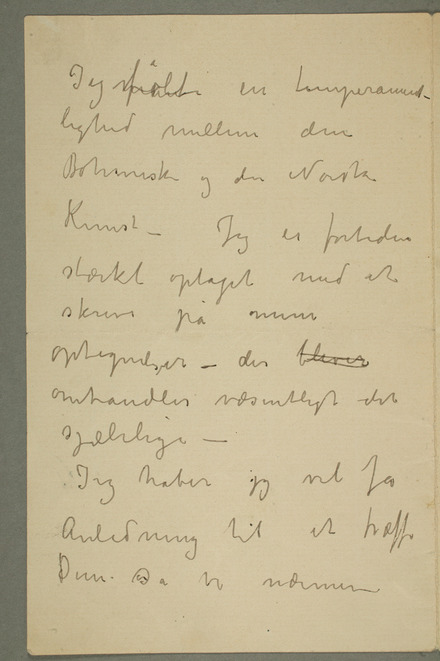 Jeg følte en temperament-
lighed mellem den
Bøhmiske og den Norske
Kunst – Jeg er fortiden
stærkt optaget med at
skrive på mine
optegnelser – der bliver
omhandler væsentligt det
sjælelige –
Jeg håber jeg vil få
Anledning til at træffe
Dem. Så vi nærmere